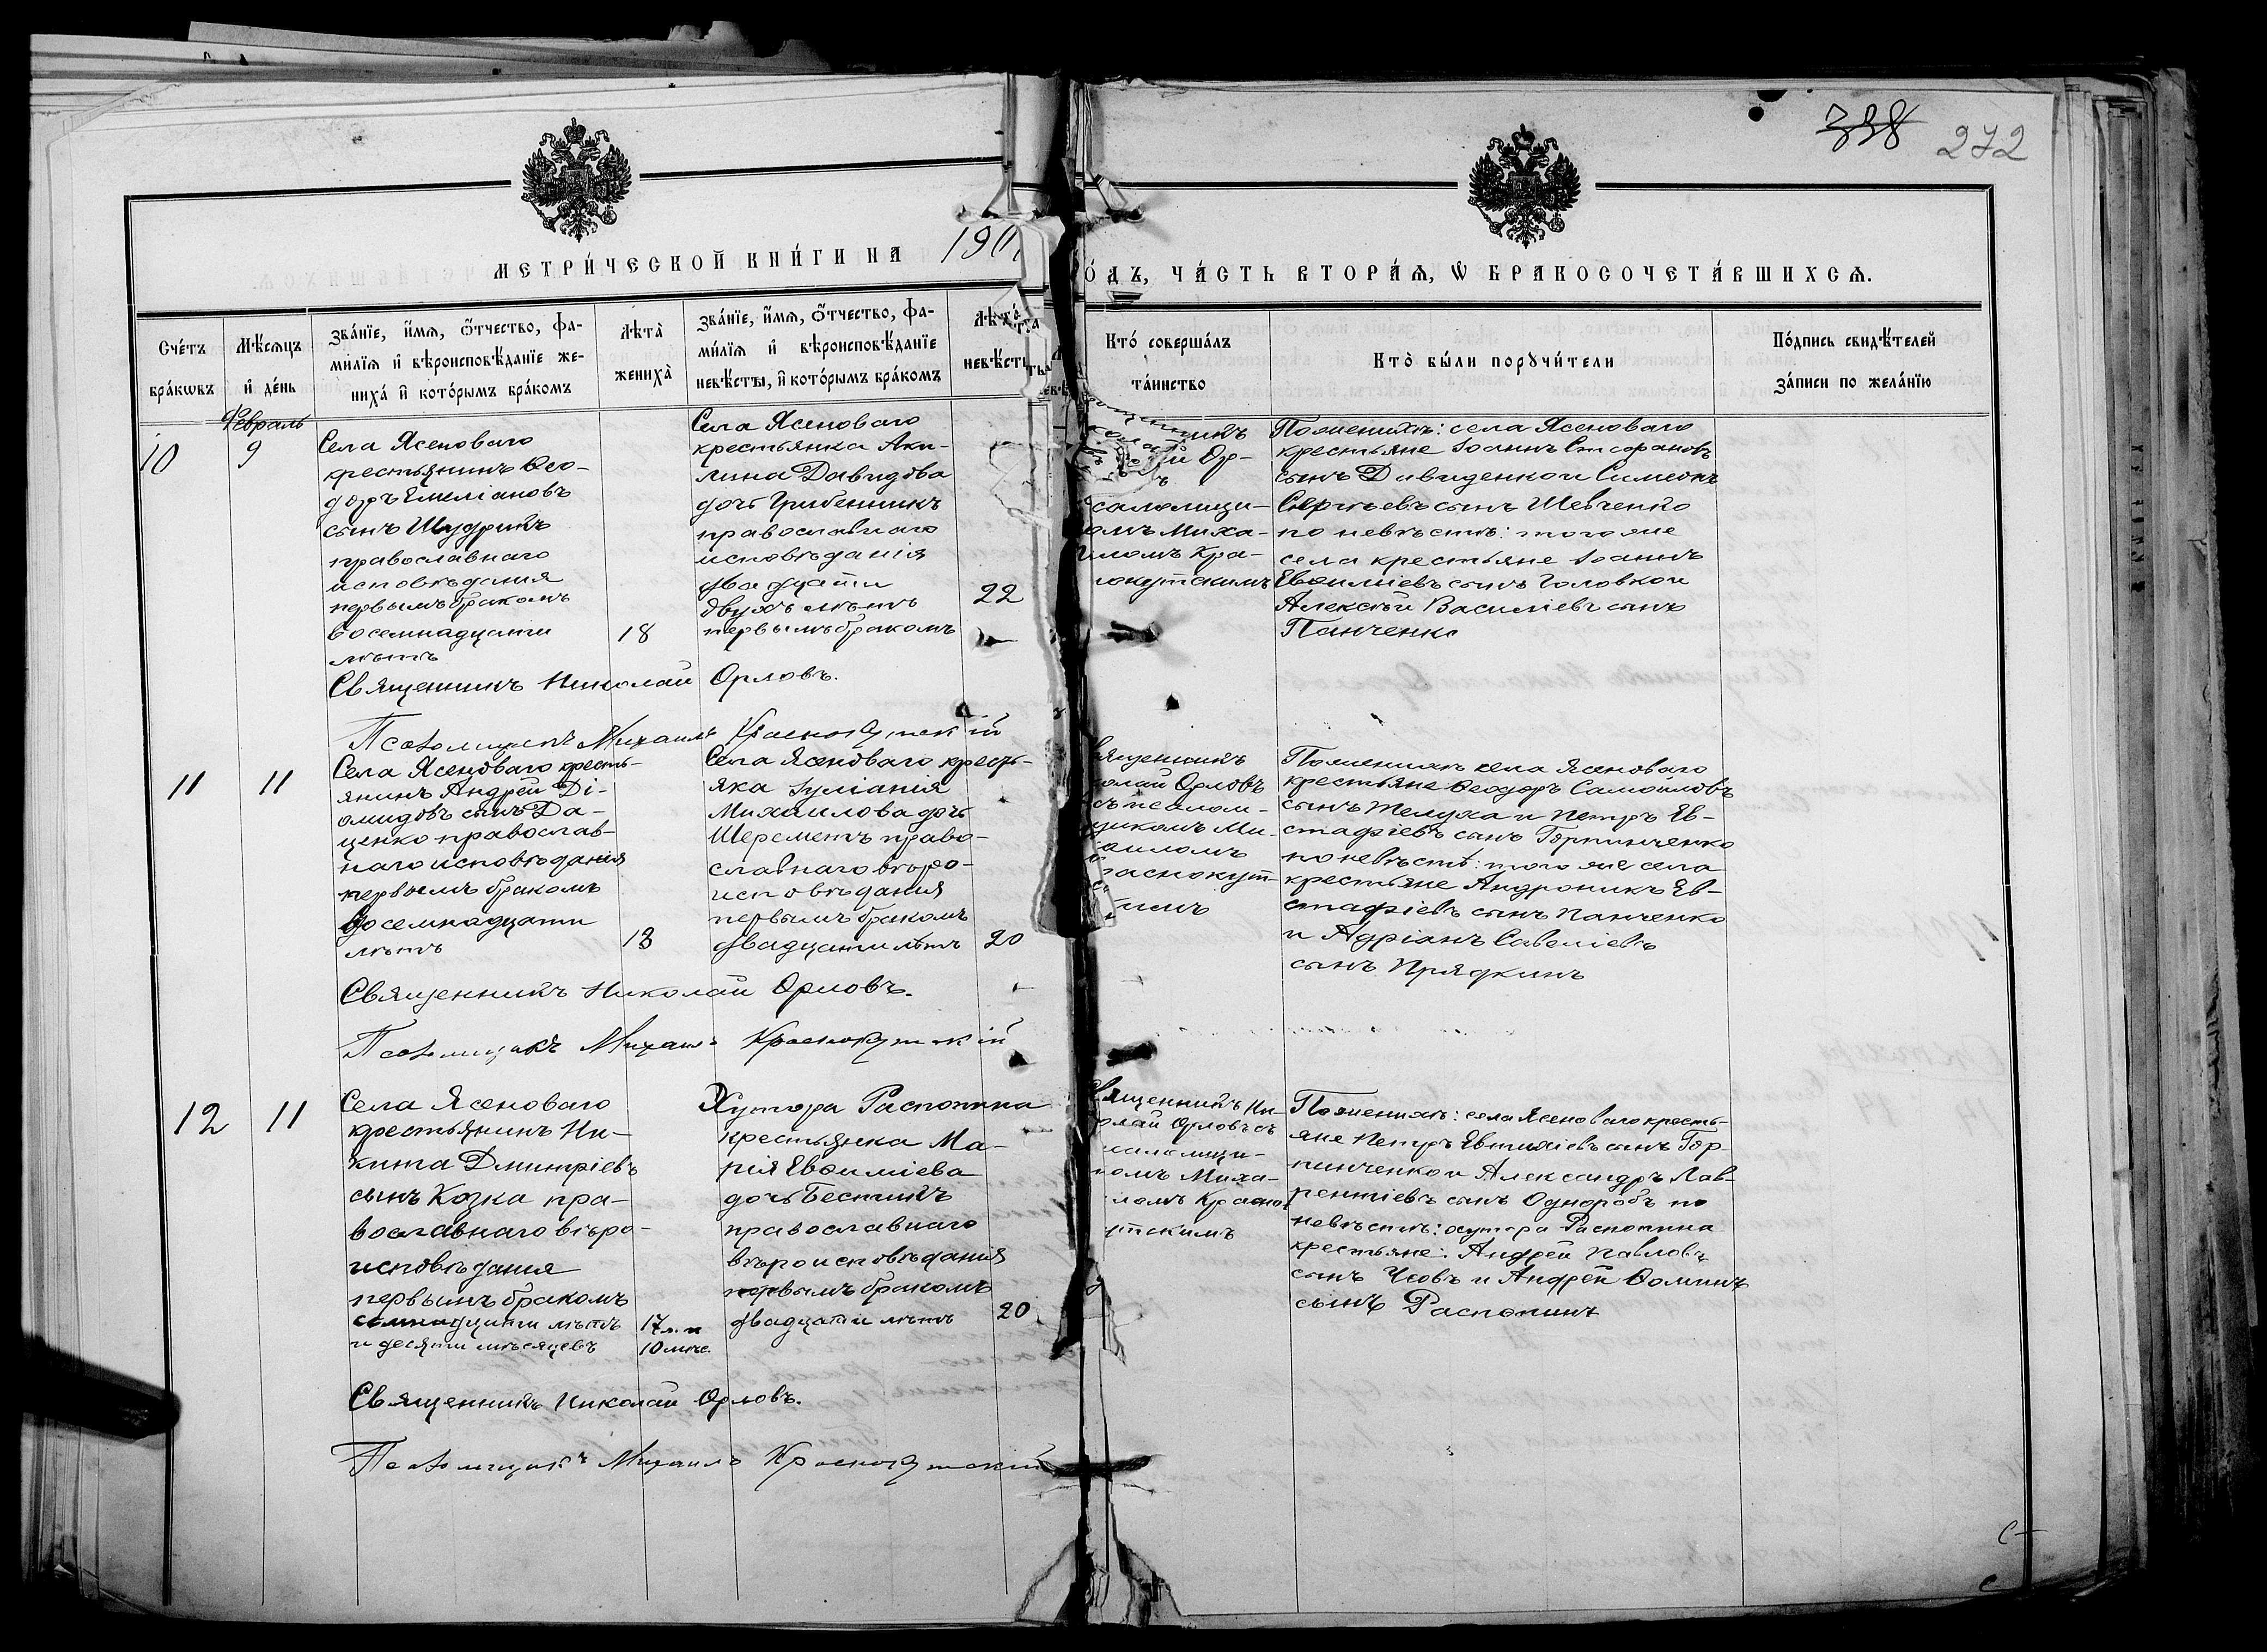 338 272
МЕТРИ́ЧЕСКОЙ КНИ́ГИ НА 190
О́ДЪ, ЧА́СТЬ ВТОРА́Ѧ, Ѡ БРАКОСОЧЕТА́ВШИХСѦ.
Сче́тъ бра́кѡвъ
Мѣ́сѧцъ и҆ де́нь
Зва́нїе, и҆́мѧ, ѻ҆́тчество, фа-
ми́лїѧ и҆ вѣроисповѣ́данїе же-
ниха́ и҆ кото́рымъ бра́комъ
Лѣта̀ жениха̀
Зва́нїе, и҆́мѧ, ѻ҆́тчество, фа-
ми́лїѧ и҆ вѣроисповѣ́данїе
невѣ́сты, и҆ кото́рымъ бра́комъ
Лѣта̀
невѣ́сты
Кто́ соверша́лъ
та́инство
Кто̀ бы́ли порꙋчи́тели
По́дпись свидѣ́телей
за́писи по жела́нїю
Февраль
10
9
Села Ясеноваго
крестьянинъ Ѳео-
доръ Емеліановъ
сынъ Щудрикъ
православнаго
исповѣданія
первымъ бракомъ
восемнадцати
лѣтъ
18
Села Ясеноваго
крестьянка Аки-
лина Давидова
дочь Гребенникъ
православнаго
исповѣданія
двадцати
двухъ лѣтъ
первымъ бракомъ
22
й Ор-
саломщи-
омъ Миха-
иломъ Кра-
нокутскимъ
По женихѣ: села Ясеноваго
крестьяне Іоаннъ Стефановъ
сынъ Давиденко и Симеонъ
Сергіевъ сынъ Шевченко
по невѣстѣ: того же
села крестьяне Іоаннъ
Евѳиміевъ сынъ Головко и
Алексѣй Василіевъ сынъ
Панченко
Священникъ Николай Орловъ.
Псаломщикъ Михаилъ Краснокутскій
11
11
Села Ясеноваго кресть-
янинъ Андрей Ді-
омидовъ сынъ Да-
ценко православ-
наго исповѣданія
первымъ бракомъ
восемнадцати
лѣтъ
18
Села Ясеноваго кресть-
яка Іуліанія
Михаилова дочь
Шереметъ право-
славнаго вѣро-
исповѣданія
первымъ бракомъ
двадцати лѣтъ
20
вященникъ
олай Орловъ
съ псалом-
щикомъ Ми-
аиломъ
раснокут-
скимъ
По женихѣ села Ясеноваго
крестьяне Ѳеодоръ Самойловъ
сынъ Желуха и Петръ Ев-
стафіевъ сынъ Горпинченко
по невѣстѣ: того же села
крестьяне Андроникъ Ев-
стафіевъ сынъ Панченко
и Адріанъ Савеліевъ
сынъ Прядкинъ
Священникъ Николай Орловъ.
Псаломщикъ Михаилъ Краснокутскій
12
11
Села Ясеноваго
крестьянинъ Ни-
кита Дмитріевъ
сынъ Козка пра-
вославнаго вѣро-
исповѣданія
первымъ бракомъ
семнадцати лѣтъ
и десяти мѣсяцевъ
17 л. и
10 мѣс.
Хутора Распопина
крестьянка Ма-
рія Евѳиміева
дочь Бестикъ
православнаго
вѣроисповѣданія
первымъ бракомъ
двадцати лѣтъ
20
вященникъ Ни-
олай Орловъ съ
саломщи-
комъ Миха-
иломъ Красно-
утскимъ
По женихѣ: села Ясеноваго кресть-
яне Петръ Евтихіевъ сынъ Гор-
пинченко и Александръ Лав-
рентіевъ сынъ Однороб по
невѣстѣ: хутора Распопина
крестьяне: Андрей Павловъ
сынъ Усовъ и Андрей Ѳоминъ
сынъ Распопинъ
Священникъ Николай Орловъ.
Псаломщикъ Михаилъ Краснокутскій